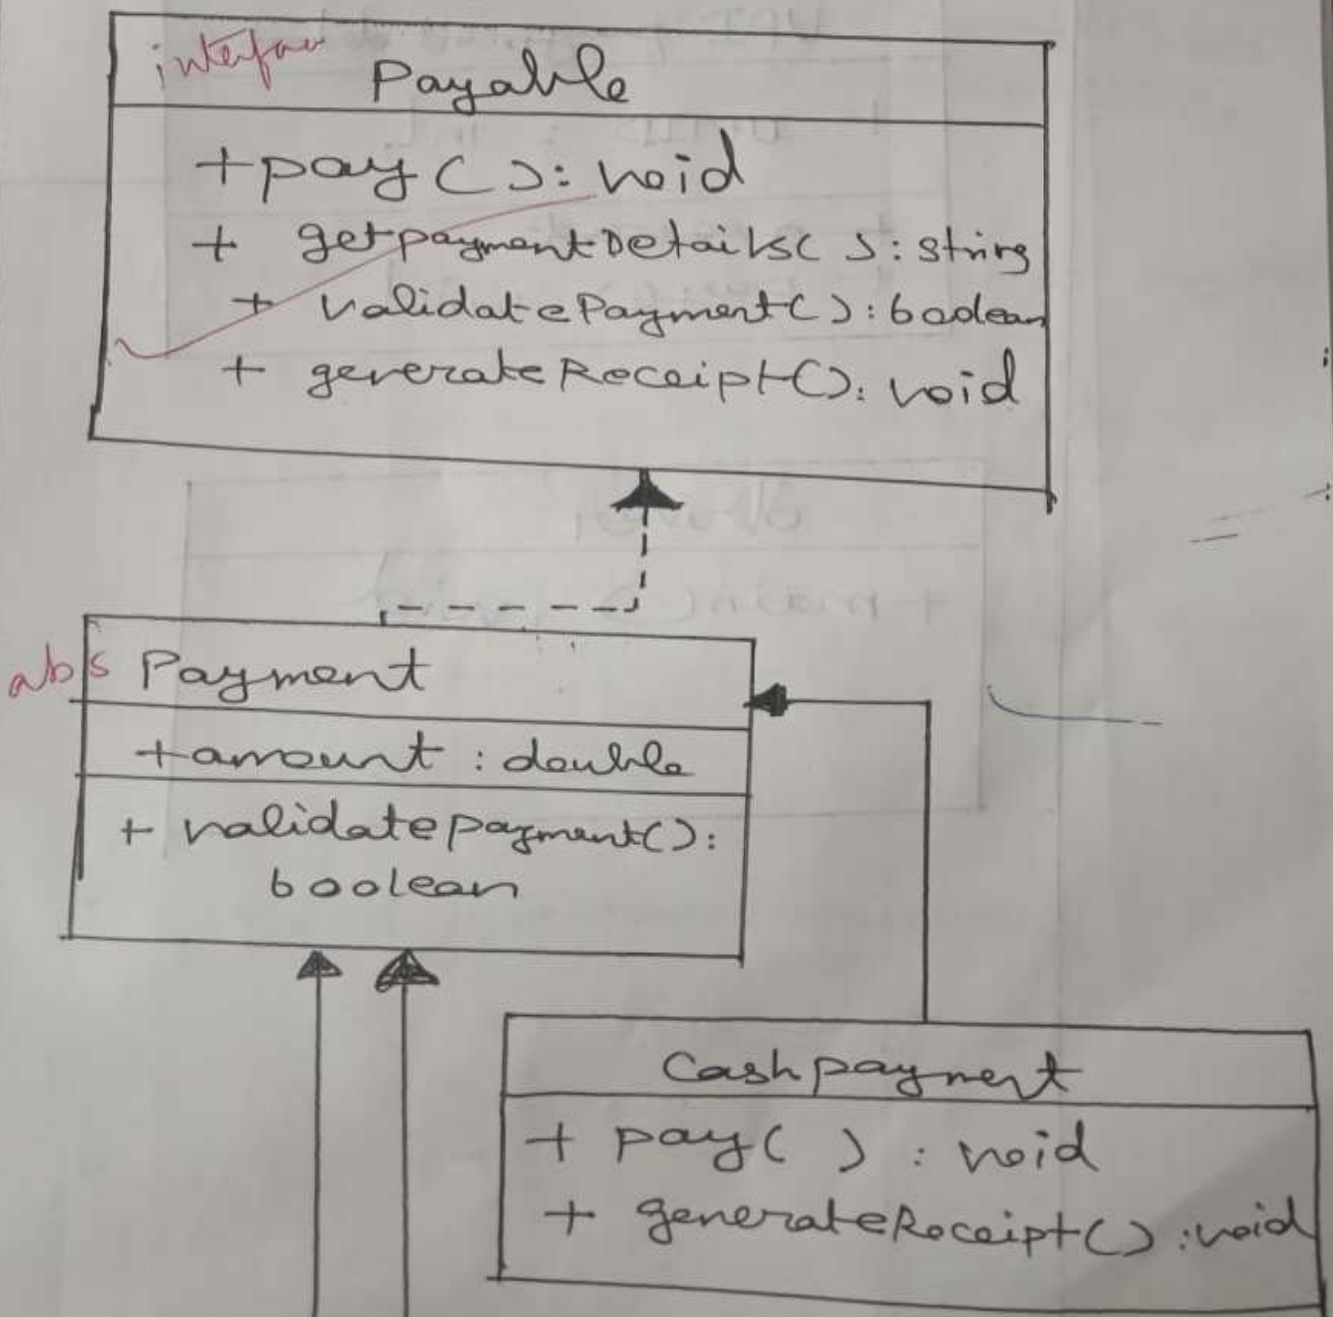 interface
Payable
+pay( ): void
+ getpaymentDetails( ): string
+ validatePayment( ): boolean
+ generateReceipt(): void
abs Payment
+amount : double
+ validatepayment():
boolean
Cashpayment
+ pay( ) : void
+ generateReceipt() : void
+ main()